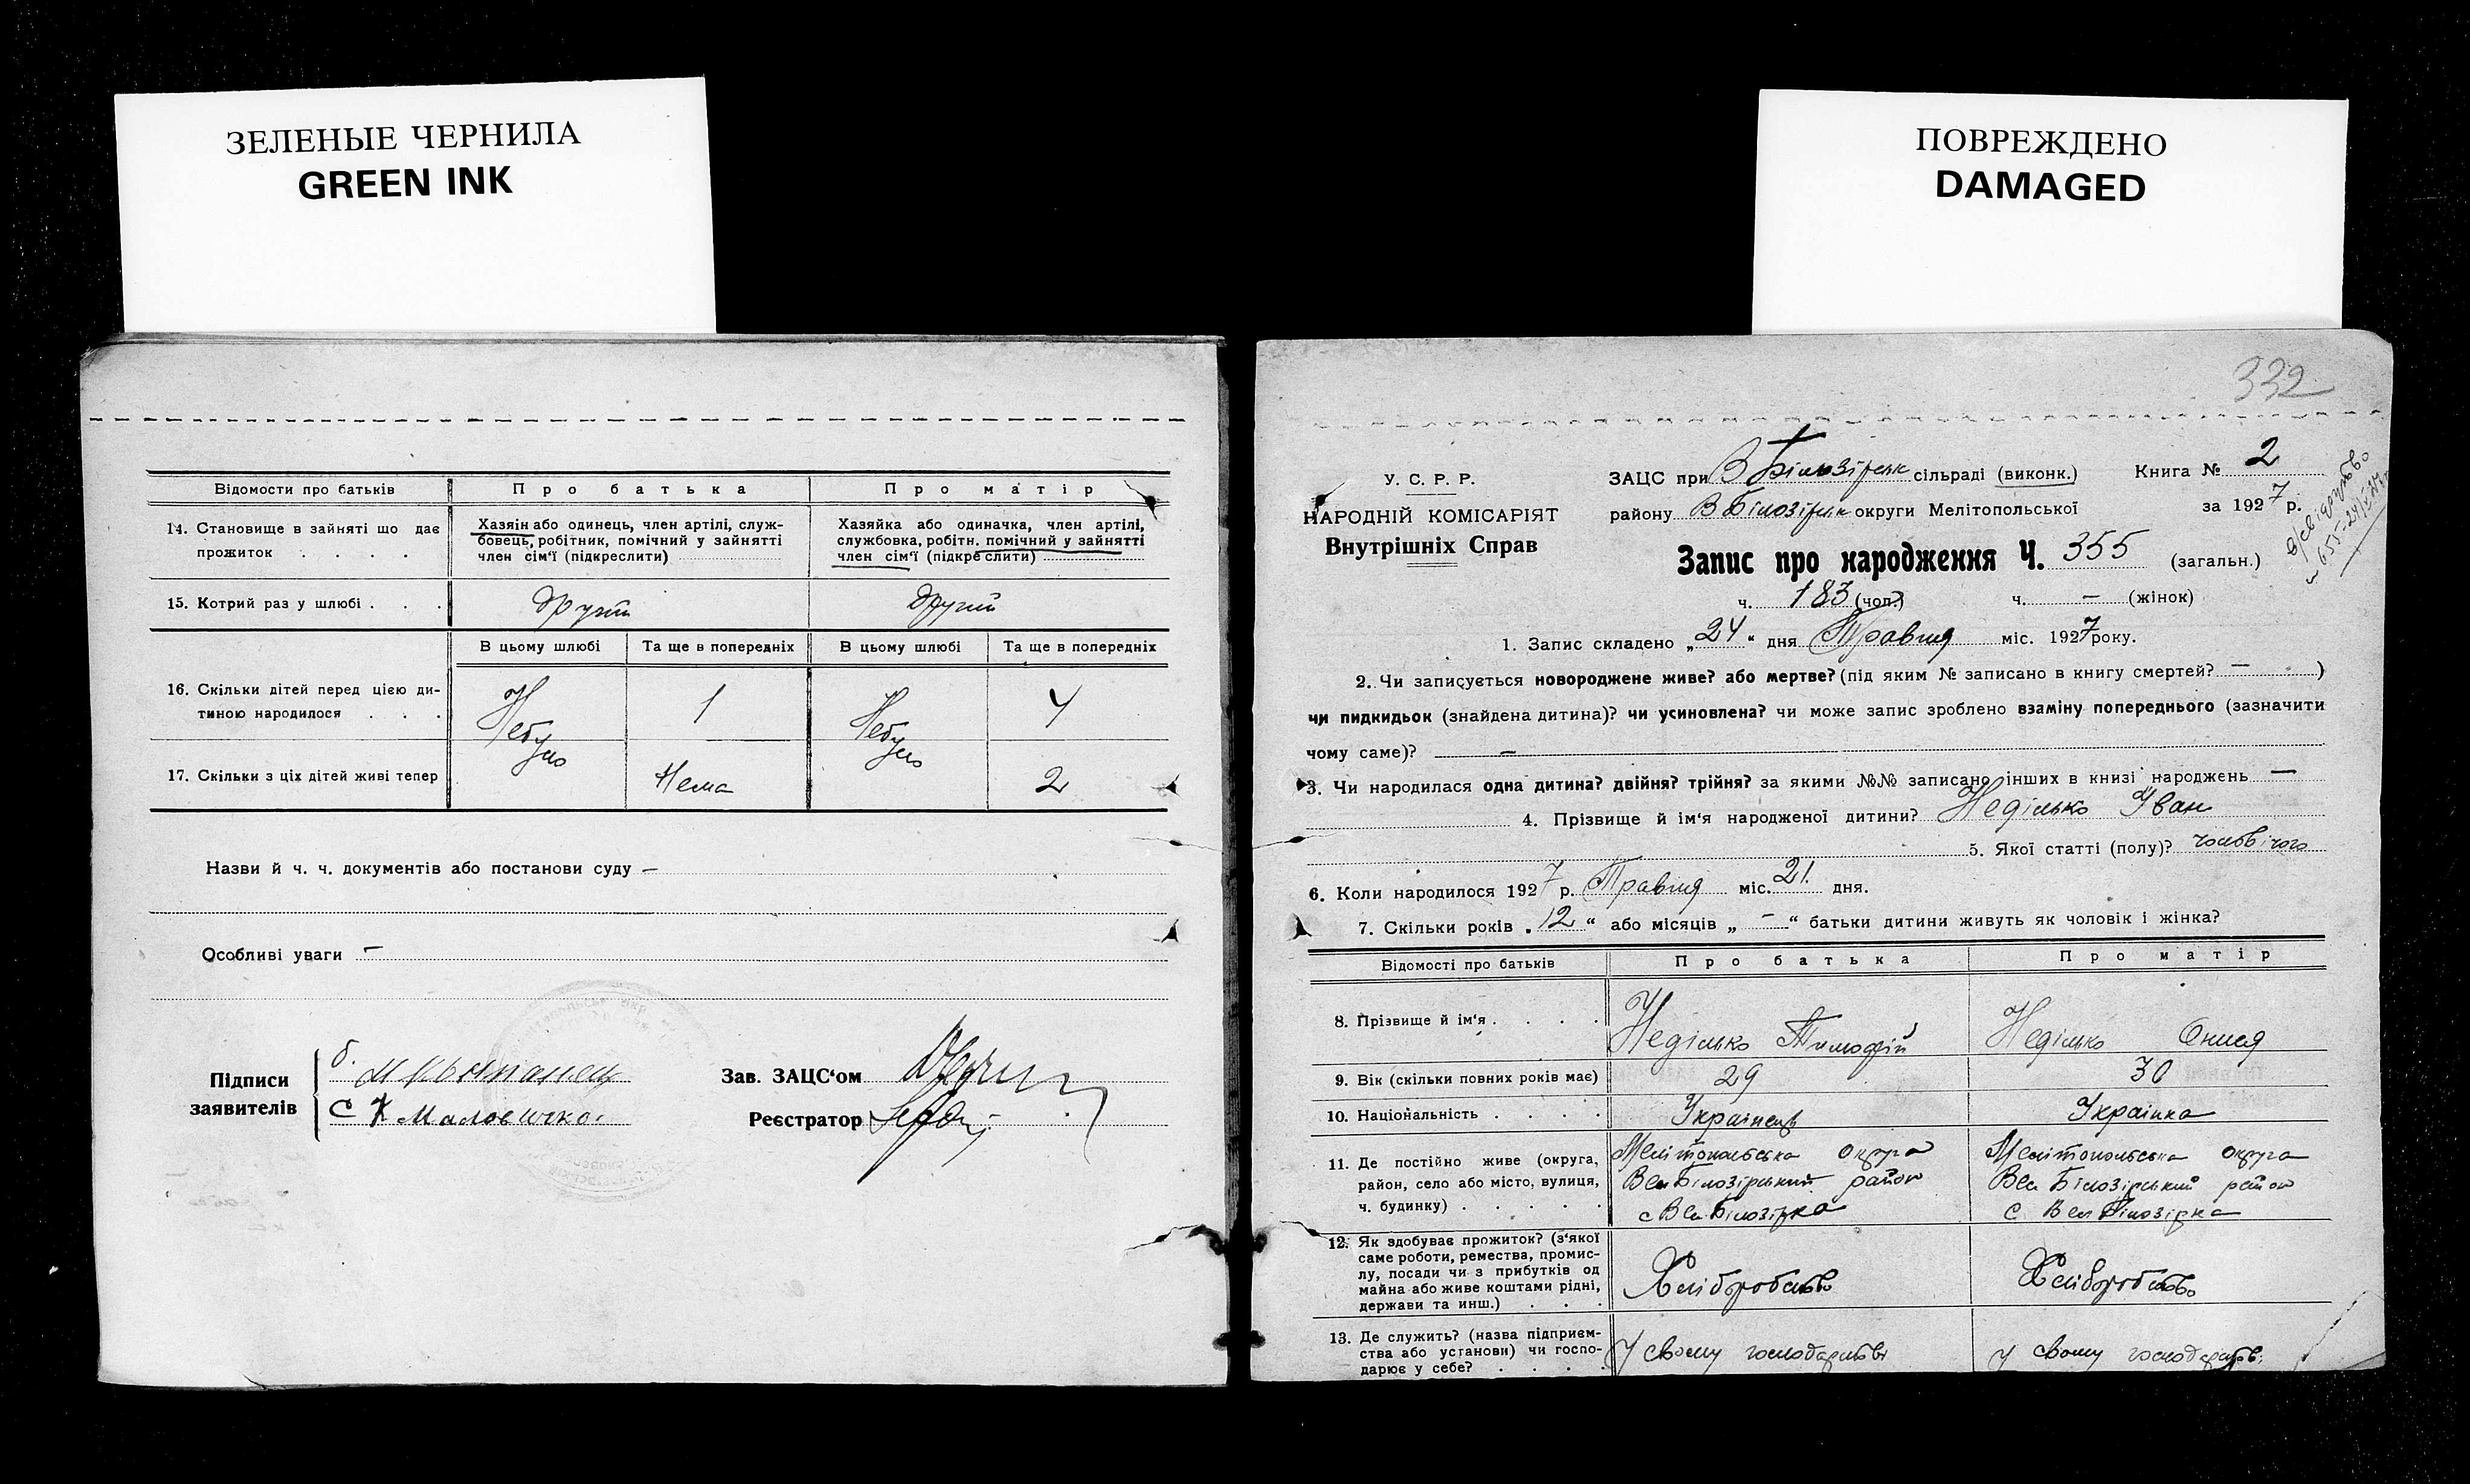 ЗЕЛЕНЫЕ ЧЕРНИЛА
GREEN INK
ПОВРЕЖДЕНО
DAMAGED
Відомости про батьків
Про батька
Про матір
14. Становище в зайняті що дає прожиток . . . .
Хазяін або одинець, член артілі, служ-
бовець, робітник, помічний у зайнятті
член сім'ї (підкреслити)
Хазяйка або одиначка, член артілі,
службовка, робітн. помічний у зайнятті
член сім'ї (підкреслити)
15. Котрий раз у шлюбі . . .
другий
другий
В цьому шлюбі
Та ще в попередніх
В цьому шлюбі
Та ще в попередніх
16. Скільки дітей перед цією ди-
тиною народилося . . .
Небуло
1
Небуло
4
17. Скільки з ціх дітей живі тепер
Нема
2
Назви й ч. ч. документів або постанови суду —
Особливі уваги —
Підписи
заявителів
б.
С
Зав. ЗАЦС'ом
Реєстратор
332
У. С. Р. Р.
НАРОДНІЙ КОМІСАРІЯТ
Внутрішніх Справ
ЗАЦС при В Білозірськ сільраді (виконк.)
Книга № 2
району В Білозірськ округи Мелітопольської
за 1927 р.
Запис про народження Ч. 355 (загальн.)
ч. 183 (чол.) ч. — (жінок)
1. Запис складено „24“ дня Травня міс. 1927 року.
2. Чи записується новороджене живе? або мертве? (під яким № записано в книгу смертей? — )
чи пидкидьок (знайдена дитина)? чи усиновлена? чи може запис зроблено взаміну попереднього (зазначити
чому саме)? —
3. Чи народилася одна дитина? двійня? трійня? за якими №№ записано інших в книзі народжень —
4. Прізвище й ім'я народженої дитини? Неділько Іван
5. Якої статті (полу)? чоловічого
6. Коли народилося 1927 р. Травня міс. 21 дня.
7. Скільки років „12“ або місяців „—“ батьки дитини живуть як чоловік і жінка?
Відомості про батьків
Про батька
Про матір
8. Прізвище й ім'я . . . .
Неділько Тимофій
Неділько Онися
9. Вік (скільки повних років має)
29
30
10. Національність . . . .
Українець
Українка
11. Де постійно живе (округа,
район, село або місто, вулиця,
ч. будинку) . . . . .
Мелітопольська округа
Вел Білозірський район
с Вел Білозірка
Мелітопольська округа
Вел Білозірський район
с Вел Білозірка
12. Як здобуває прожиток? (з'якої
саме роботи, ремества, промис-
лу, посади чи з прибутків од
майна або живе коштами рідні,
держави та инш.) . . .
Хліборобство
Хліборобство
13. Де служить? (назва підприєм-
ства або установи) чи госпо-
дарює у себе? . . . .
У свому господарстві
У свому господарстві